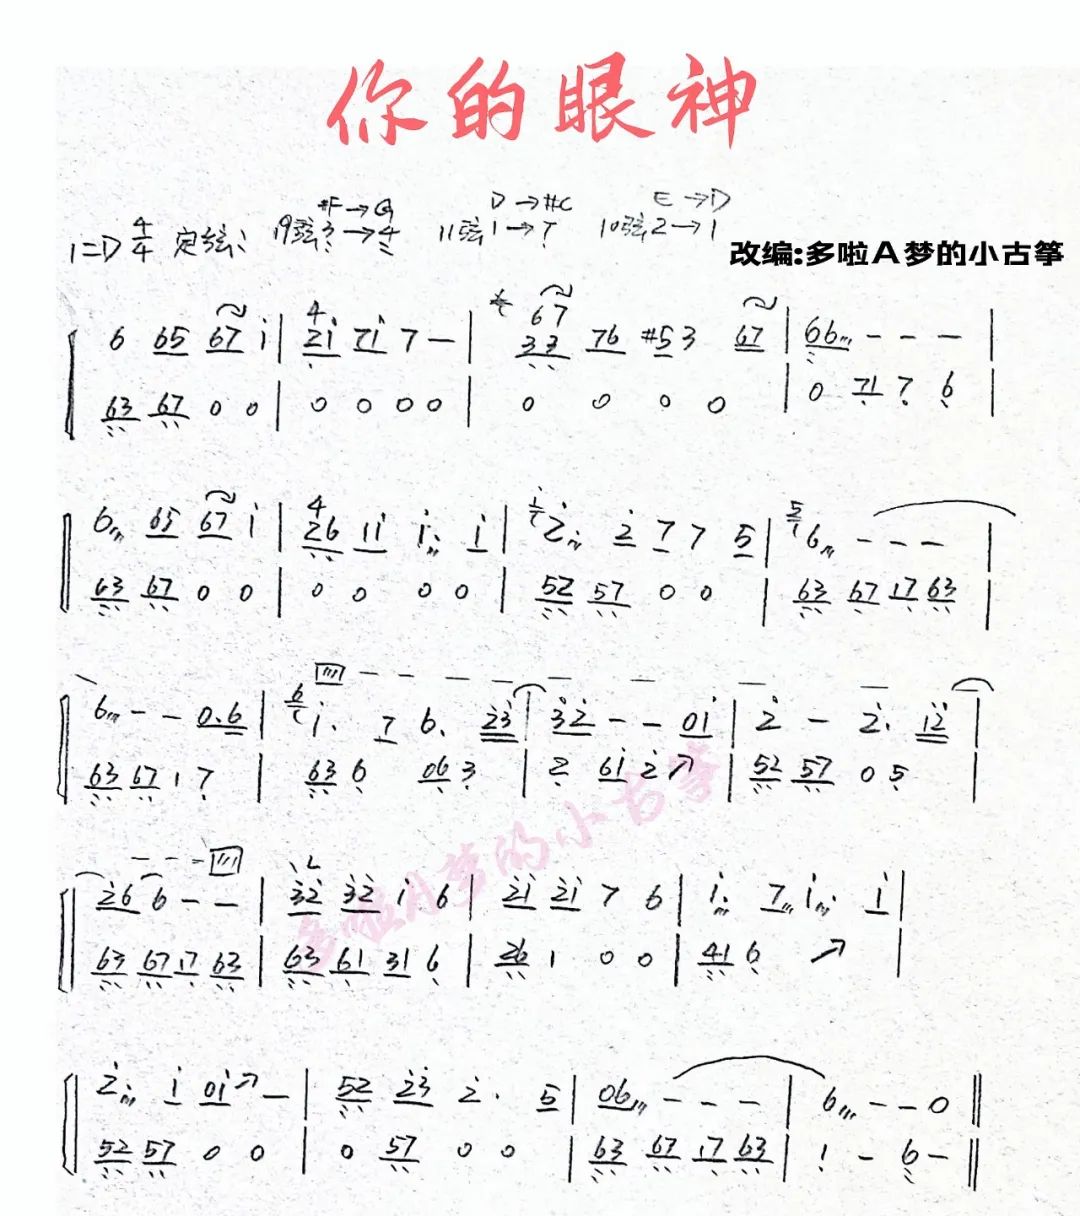 你的眼神
#F→G D→#C E→D
1=D 4/4 定弦: 19弦3→4 11弦1→7 10弦2→1
改编:多啦A梦的小古筝
6 65 67 i | 4 2i 7i 7 — | 67 33 76 #53 67 | 66 - - - |
63 67 0 0 | 0 0 0 0 | 0 0 0 0 | 0 71 7 6 |
6 65 67 i | 4 26 11 i. i | 2 2 7 7 5 | 5 6 - - - |
63 67 0 0 | 0 0 0 0 | 52 57 0 0 | 63 67 17 63 |
6 - - 0.6 | 6 i. 7 6. 23 | 32 - - 0i | 2 - 2. 12 |
63 67 1 7 | 63 6 06 3 | 2 61 2↗ | 52 57 0 5 |
26 6 - - | 32 32 i 6 | 2i 2i 7 6 | i. 7 i. i |
63 67 17 63 | 63 61 31 6 | 26 1 0 0 | 41 6 ↗ |
多啦A梦的小古筝
2 i 0i↗ — | 52 23 2. 5 | 06 - - - | 6 - - 0 ‖
52 57 0 0 | 0 57 0 0 | 63 67 17 63 | 1 - 6 - ‖